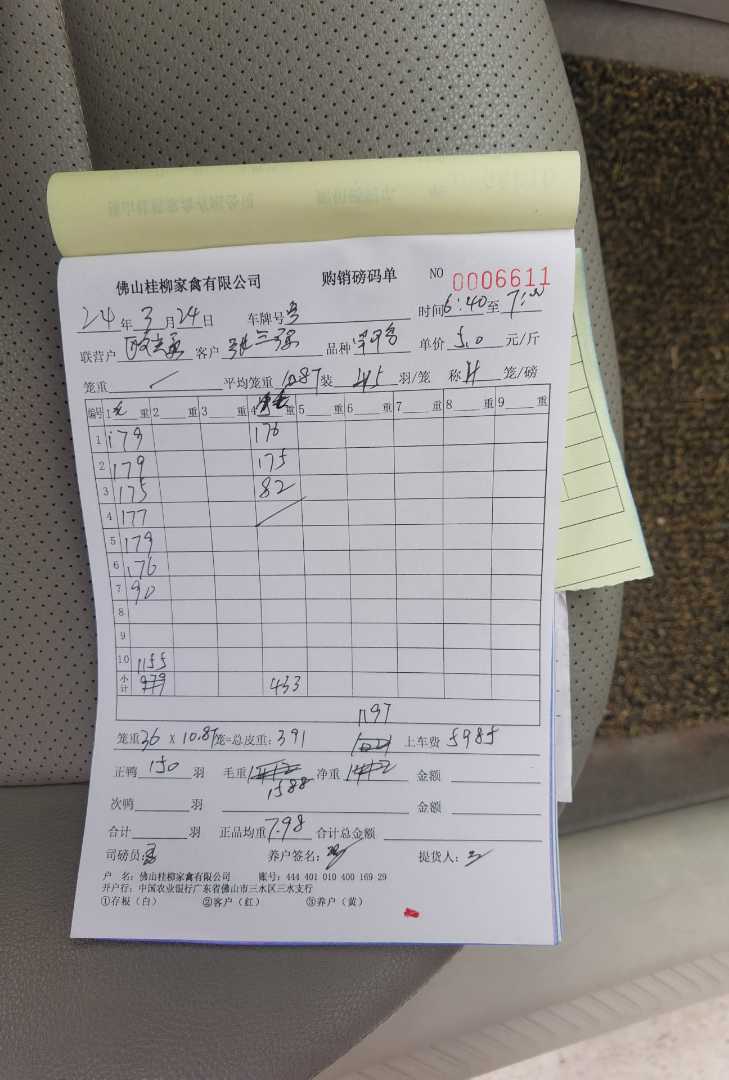 佛山桂柳家禽有限公司 购销磅码单 NO 0006611
24年3月24日 车牌号 时间6:40至7:00
联营户 客户 张三强 品种 单价 5.0 元/斤
笼重 / 平均笼重 10.87 装 4.5 羽/笼 称 4 笼/磅
编号 1 毛 重 2 重 3 重 4 重 5 重 6 重 7 重 8 重 9 重
1 179 176
2 179 175
3 175 82
4 177 /
5 179
6 176
7 90
8
9
10 1155
小计 979 433
1197
笼重36 X 10.87笼=总皮重:391 上车费 5985
正鸭 150 羽 毛重 净重 金额
1588
次鸭 羽 金额
合计 羽 正品均重7.98 合计总金额
司磅员: 养户签名: 提货人:
户 名: 佛山桂柳家禽有限公司 账号: 444 401 010 400 169 29
开户行: 中国农业银行广东省佛山市三水区三水支行
①存板(白) ②客户(红) ③养户(黄)